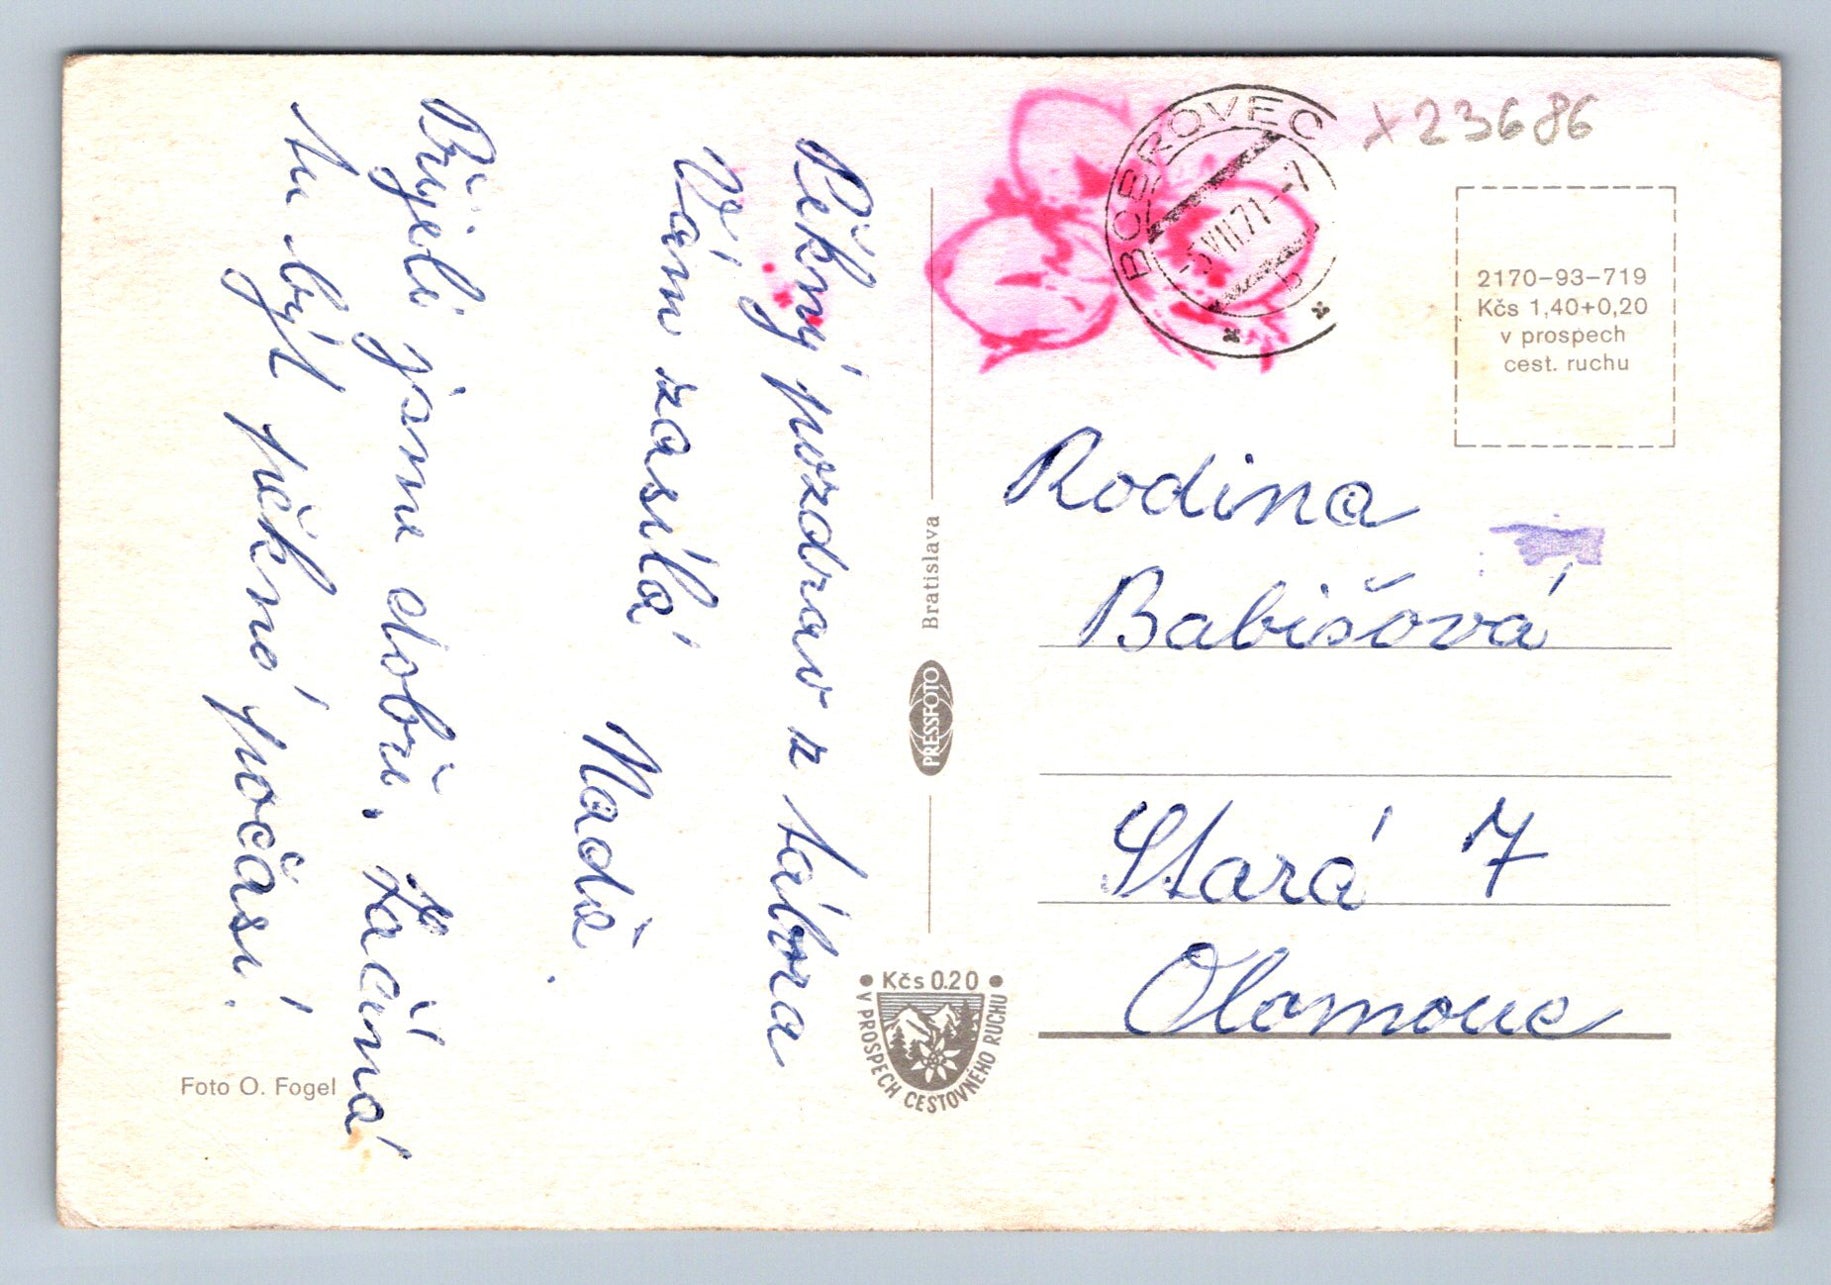 Pěkný pozdrav z tábora
Vám zasílá
Nadě.
Přijeli jsme dobře. Začíná
tu být pěkné počasí.
Foto O. Fogel
Bratislava
PRESSFOTO
Kčs 0.20
V PROSPĚCH CESTOVNÉHO RUCHU
BOBROVEC
-5.VII.71--7
b
x23686
2170-93-719
Kčs 1,40+0,20
v prospech
cest. ruchu
Rodina
Babišová
Stará 7
Olomouc